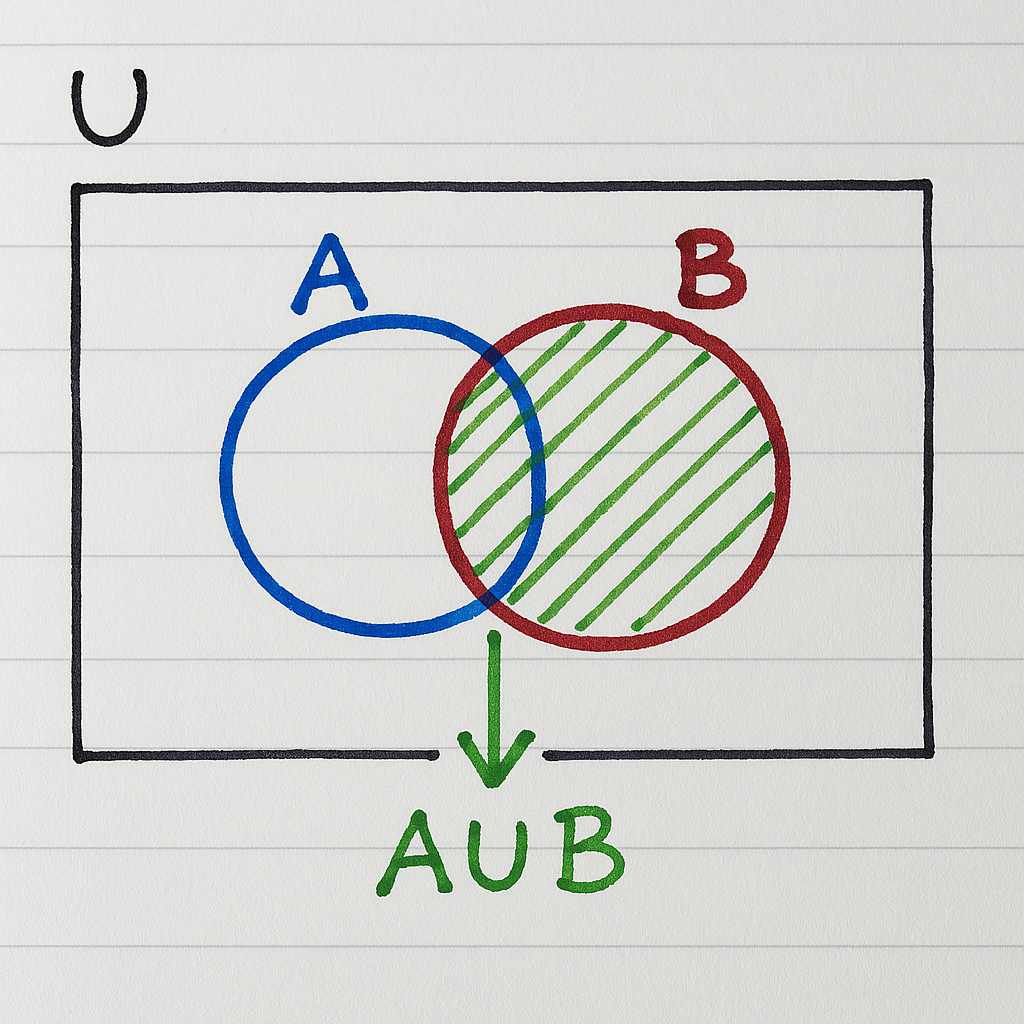 U
A B
AUB